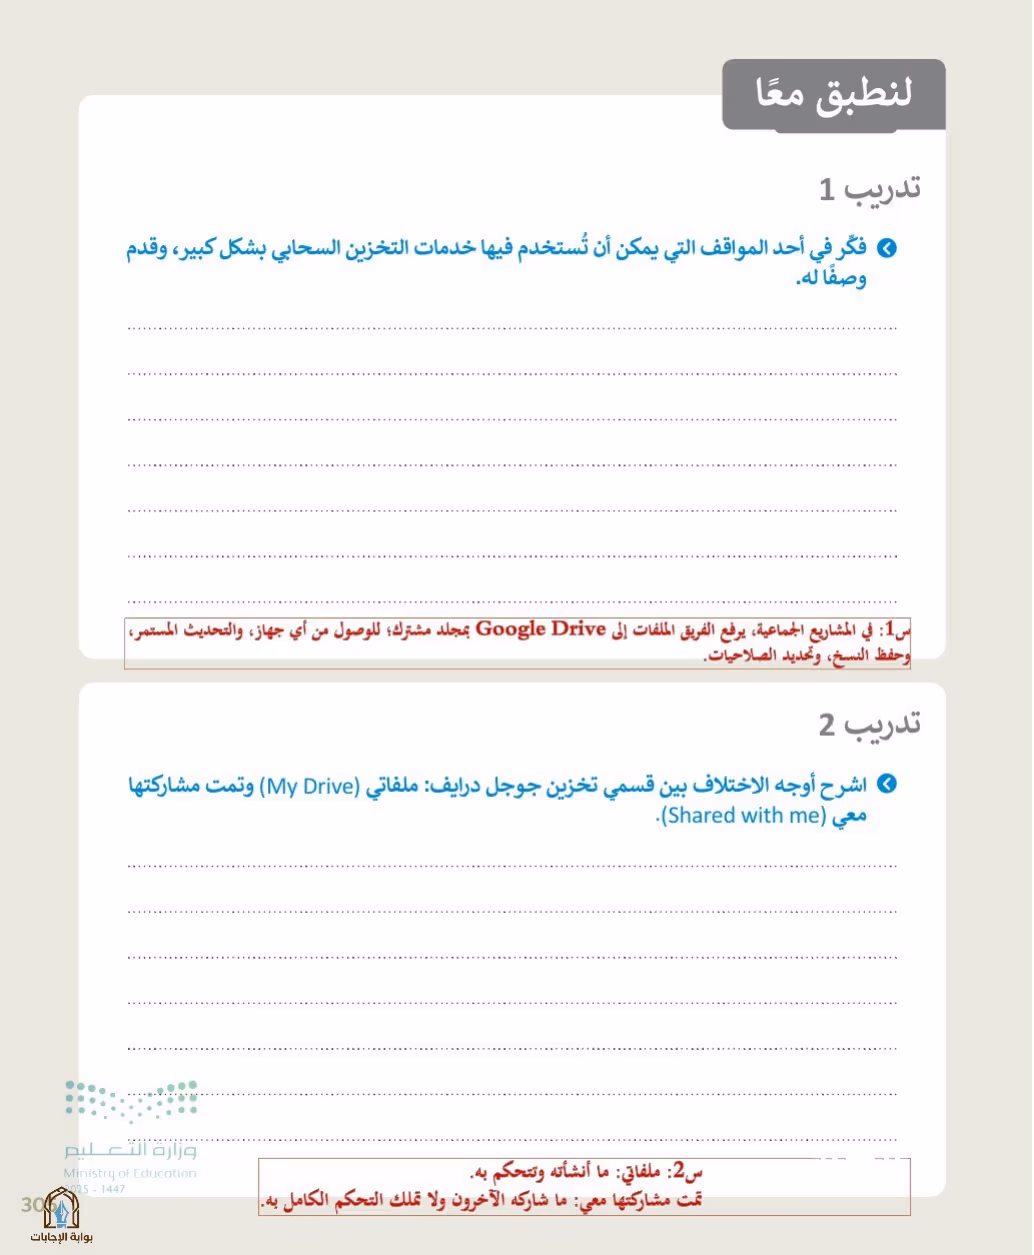 لنطبق معًا
تدريب 1
فكّر في أحد المواقف التي يمكن أن تُستخدم فيها خدمات التخزين السحابي بشكل كبير، وقدم
وصفًا له.
س1: في المشاريع الجماعية، يرفع الفريق الملفات إلى Google Drive بمجلد مشترك؛ للوصول من أي جهاز، والتحديث المستمر،
وحفظ النسخ، وتحديد الصلاحيات.
تدريب 2
اشرح أوجه الاختلاف بين قسمي تخزين جوجل درايف: ملفاتي (My Drive) وتمت مشاركتها
معي (Shared with me).
س2: ملفاتي: ما أنشأته وتتحكم به.
تمت مشاركتها معي: ما شاركه الآخرون ولا تملك التحكم الكامل به.
وزارة التعليم
Ministry of Education
2025 - 1447
بوابة الإجابات